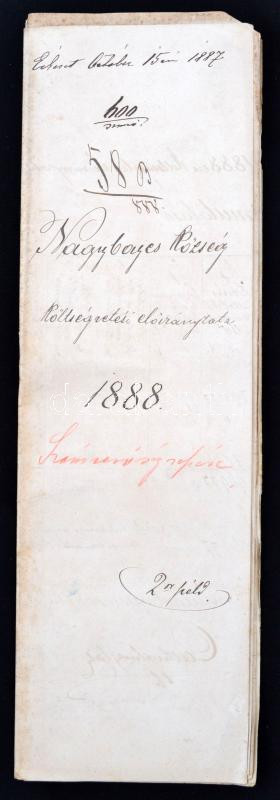 Érkezett October 15én 1887
600
58 B
888.
Nagybajcs Község
költségvetési előirányzata
1888.
Számvevőség része
2ik péld.